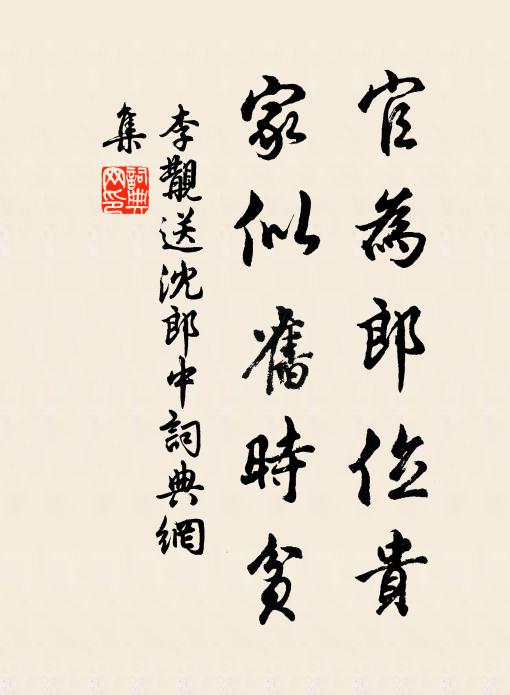 官為郎位貴
家似舊時貧
李覯送沈郎中詞典網
集
詞典網印